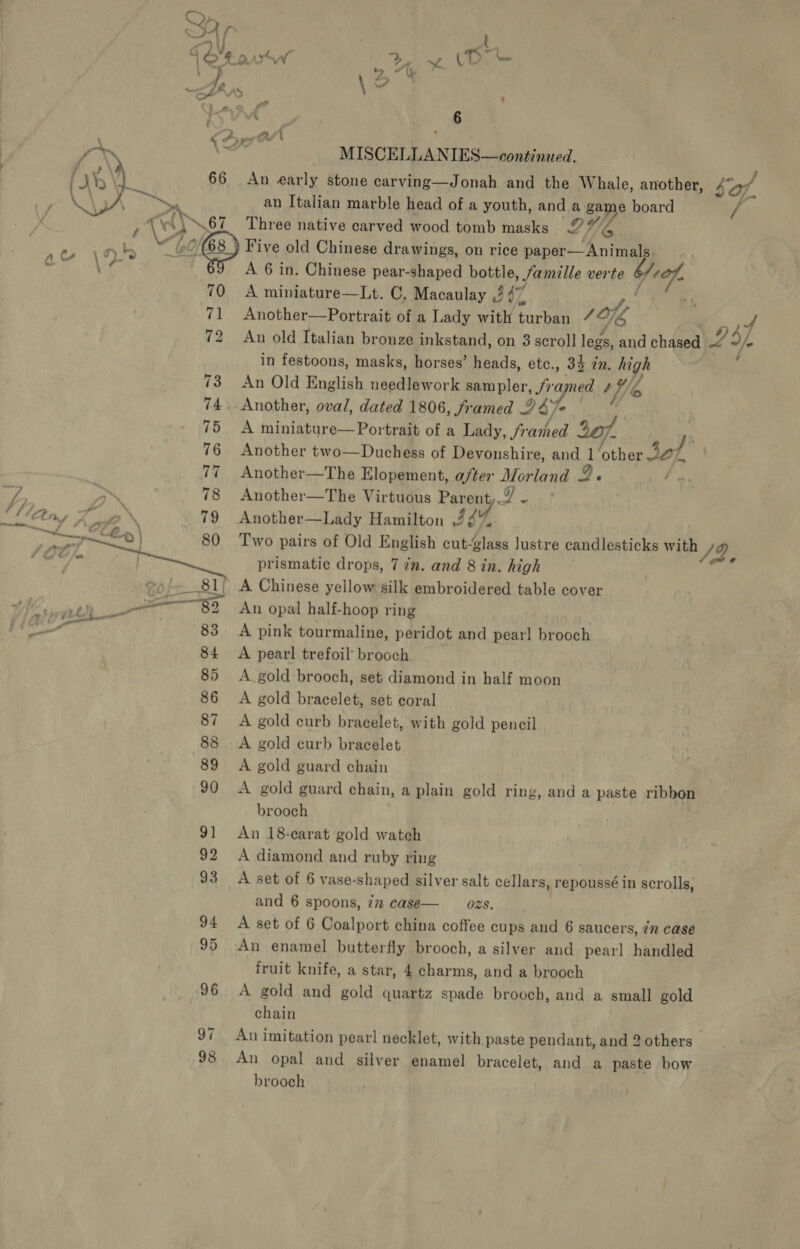 6
MISCELLANIES—continued.
66 An early stone carving—Jonah and the Whale, another,
an Italian marble head of a youth, and a game board
67 Three native carved wood tomb masks
68 Five old Chinese drawings, on rice paper—Animals
69 A 6 in. Chinese pear-shaped bottle, famille verte
70 A miniature—Lt. C. Macaulay
71 Another—Portrait of a Lady with turban
72 An old Italian bronze inkstand, on 3 scroll legs, and chased
in festoons, masks, horses' heads, etc., 3½ in. high
73 An Old English needlework sampler, framed
74 Another, oval, dated 1806, framed
75 A miniature—Portrait of a Lady, framed
76 Another two—Duchess of Devonshire, and 1 other
77 Another—The Elopement, after Morland
78 Another—The Virtuous Parent,
79 Another—Lady Hamilton
80 Two pairs of Old English cut-glass lustre candlesticks with
prismatic drops, 7 in. and 8 in. high
81 A Chinese yellow silk embroidered table cover
82 An opal half-hoop ring
83 A pink tourmaline, peridot and pearl brooch
84 A pearl trefoil brooch
85 A gold brooch, set diamond in half moon
86 A gold bracelet, set coral
87 A gold curb bracelet, with gold pencil
88 A gold curb bracelet
89 A gold guard chain
90 A gold guard chain, a plain gold ring, and a paste ribbon
brooch
91 An 18-carat gold watch
92 A diamond and ruby ring
93 A set of 6 vase-shaped silver salt cellars, repoussé in scrolls,
and 6 spoons, in case— ozs.
94 A set of 6 Coalport china coffee cups and 6 saucers, in case
95 An enamel butterfly brooch, a silver and pearl handled
fruit knife, a star, 4 charms, and a brooch
96 A gold and gold quartz spade brooch, and a small gold
chain
97 An imitation pearl necklet, with paste pendant, and 2 others
98 An opal and silver enamel bracelet, and a paste bow
brooch